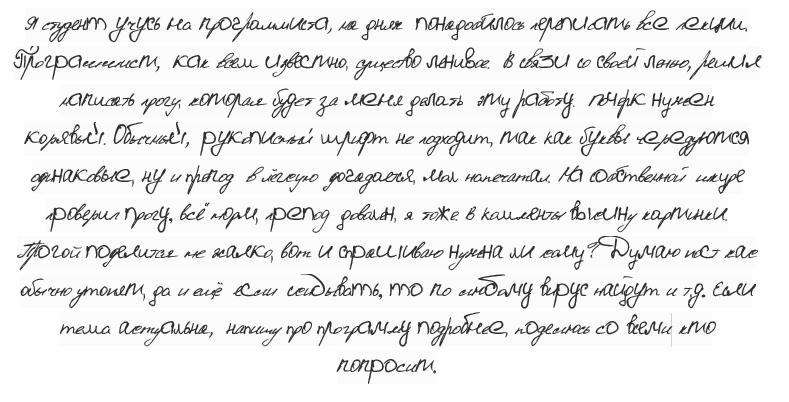 Я студент учусь на программиста, на днях понадобилось переписать все лекции.
Программист, как всем известно, существо ленивое. В связи со своей ленью, решил
написать прогу, которая будет за меня делать эту работу. почерк нужен
корявый. Обычный, рукописный шрифт не подходит, так как буквы чередуются
одинаковые, ну и препод в лёгкую догадается, мол напечатал. На собственной шкуре
проверил прогу, всё норм, препод доволен, я тоже. в комменты выкину картинки.
Прогой поделится не жалко, вот и спрашиваю нужна ли кому? Думаю пост как
обычно утонет, да и ещё если скидывать, то по любому вирус найдут и т.д. Если
тема актуальна, напишу про программу подробнее, поделюсь со всеми кто
попросит.